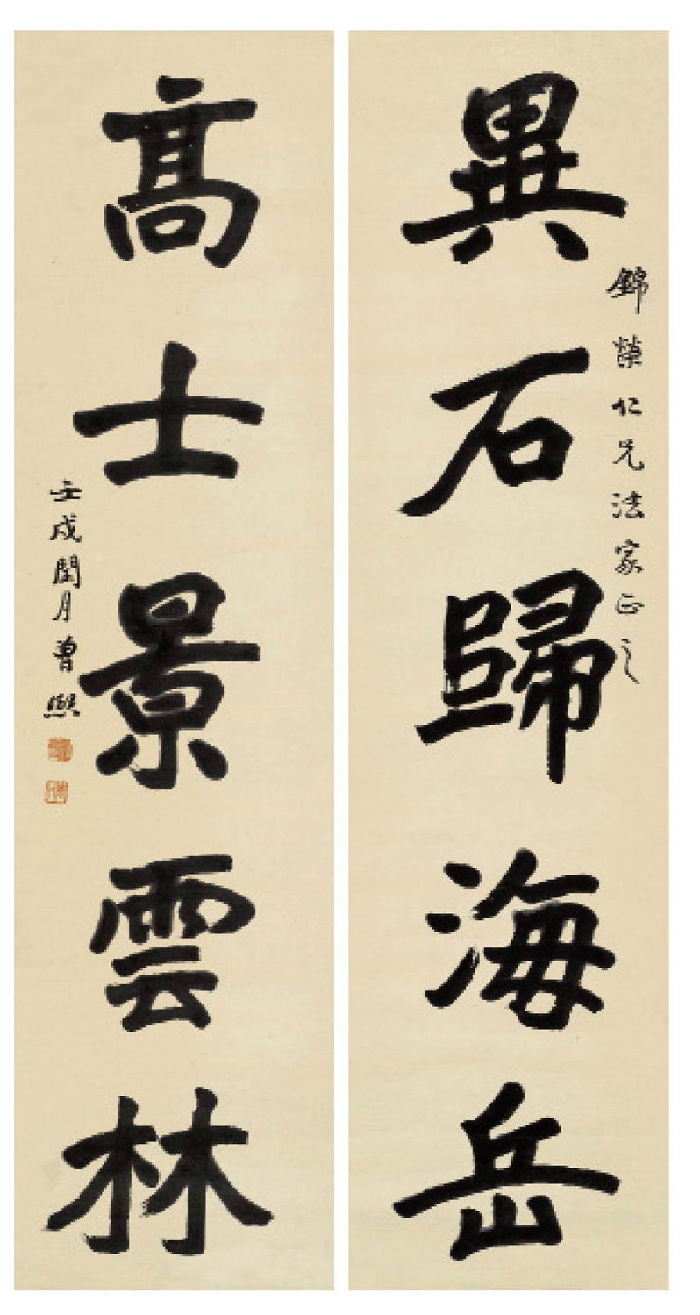 錦榮仁兄法家正之
異石歸海岳
高士景雲林
壬戌閏月曾熙